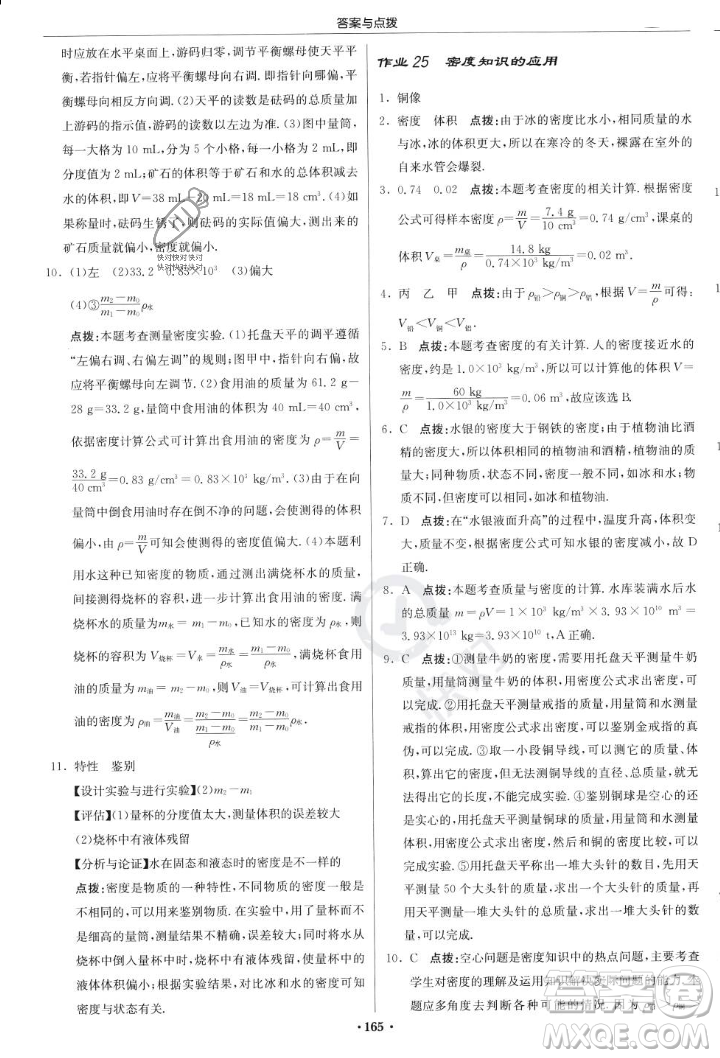 答案与点拨
时应放在水平桌面上,游码归零,调节平衡螺母使天平平
衡,若指针偏左,平衡螺母向右调节,若指针偏右,平衡
螺母向左调节.(2)天平的读数是砝码的总质量加
上游码的指示值,游码的读数以左边为准.(3)图中量筒,
10 mL~20 mL,分为5个小格,每个小格为2 mL,即
分度值为2 mL;矿石的体积等于水和矿石的总体积减去
水的体积,即V=38 mL-20 mL=18 mL=18 cm³.(4)如
果称量中,砝码生锈了,砝码的实际值偏大,则测出的
矿石质量就偏小,密度偏小.
快对快对快对
10. (1)左 (2)33.2 0.83×10³ (3)偏大
快对快对快对
(4)③(m₂-m₀)/(m₁-m₀)ρ水
点拨:本题考查测量密度实验.(1)托盘天平的调平遵循
“左偏右调、右偏左调”的规则;图甲中,指针向右偏,故
应将平衡螺母向左调节.(2)食用油的质量为61.2 g-
28 g=33.2 g,食用油的体积为40 mL=40 cm³,
依据密度计算公式可计算出食用油的密度为ρ=m/V=
33.2 g/40 cm³=0.83 g/cm³=0.83×10³ kg/m³.(3)食用油从烧杯
中倒出食用油时存在倒不净的问题,会使测得的体积偏
小,由ρ=m/V可知会使测得的密度值偏大.(4)本题利
用水这种已知密度的物质,通过测出满烧杯水的质量,
间接测得烧杯的容积,进而求出食用油的密度.即:满
烧杯水的质量为m水=m₁-m₀,水的密度为ρ水,所以
烧杯的容积为V烧杯=V水=(m₁-m₀)/ρ水,满烧杯食用
油的质量为m油=m₂-m₀,则V油=V烧杯,可计算出食用
油的密度为ρ油=m油/V油=(m₂-m₀)/(m₁-m₀)ρ水.
11. 特性 鉴别
【设计实验与进行实验】(2)m₂-m₁
【评估】(1)量杯的分度值太大,测量体积的误差较大
(2)烧杯中有液体残留
【分析与论证】水在固态和液态时的密度是不一样的
点拨:密度是物质的一种特性,不同物质的密度一般是
不同的,可用来鉴别物质.在实验中,用了量杯而不是
细高的量筒,误差较大.当烧杯中的液体倒入量杯时,
烧杯中会有液体残留,使测得的体积偏小,测得的密度
偏大,应该改进.根据实验结论可得出,对于同种物质,
密度与状态有关.
作业25 密度知识的应用
1. 铜像
2. 密度 体积 点拨:由于冰的密度比水小,相同质量的水
与冰,冰的体积更大,所以在寒冷的冬天,裸露在室外的
自来水管会爆裂.
3. 0.74 0.02 点拨:本题考查密度的相关计算.根据密度
公式可得样本密度ρ=m/V=7.4 g/10 cm³=0.74 g/cm³,课桌的
体积V桌=m桌/ρ=14.8 kg/0.74×10³ kg/m³=0.02 m³.
4. 丙 乙 甲 点拨:由于ρ铅>ρ铜>ρ铝,根据V=m/ρ可得:
V铅<V铜<V铝.
5. B 点拨:本题考查密度的应用.中学生的密度与水的密
度接近,约是1.0×10³ kg/m³,根据公式计算得体积V=
m/ρ=60 kg/1.0×10³ kg/m³=0.06 m³,故应该选B.
6. C 点拨:水银的密度大于钢铁的密度;由于植物油比酒
精的密度大,所以体积相同的植物油和酒精,植物油的质
量大;同种物质,状态不同,密度一般不同,如冰和水;物
质不同,但密度可能相同,如冰和植物油.
7. D 点拨:在“水银液面升高”的过程中,温度升高,体积变
大,质量不变,根据密度公式可知水银的密度变小,故D
正确.
8. A 点拨:本题考查质量与密度的计算.水库装满水后水
的总质量m=ρV=1×10³ kg/m³×3.93×10¹⁰ m³=
3.93×10¹³ kg=3.93×10¹⁰ t,A正确.
9. C 点拨:①测量牛奶的密度,需要用托盘天平测量牛奶
质量,用量筒测量牛奶的体积,用密度公式求出密度,可以
完成.②用托盘天平测量戒指的质量,用量筒和水测量戒
指的体积,用密度公式求出密度,可以鉴别金戒指的真
伪,可以完成.③取一小段铜导线,可以测量一小段铜导
线的质量、体积,求出密度,但不能测量一捆铜导线的质量
和体积,不能求出长度,不能完成.④鉴别铜球是空心的还
是实心的,用托盘天平测量铜球的质量,用量筒和水测量
体积,用密度公式求出密度,和铜的密度进行比较,可以
完成实验.⑤用托盘天平称出一堆大头针的数目,先用天
平测量50个大头针的质量,求出一个大头针的质量,然后
再用天平测量一堆大头针的质量,求出一堆大头针的数
量,可以完成.
10. C 点拨:空心问题是密度知识中的热点问题,主要考查
学生对密度的理解及运用知识解决实际问题的能力.本
题应多角度去判断各种可能的情况.因为
· 165 ·